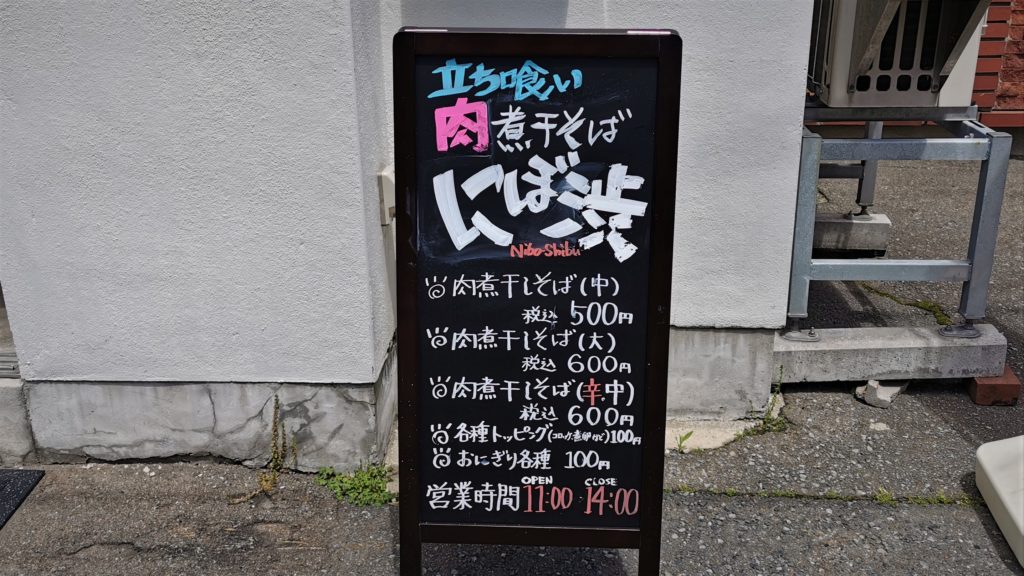 立ち喰い
肉煮干そば
にぼ渋
Nibo-Shibu
肉煮干しそば(中)
税込 500円
肉煮干しそば(大)
税込 600円
肉煮干しそば(辛.中)
税込 600円
各種トッピング(コロッケ.煮卵など)100円
おにぎり各種 100円
OPEN CLOSE
営業時間 11:00 14:00